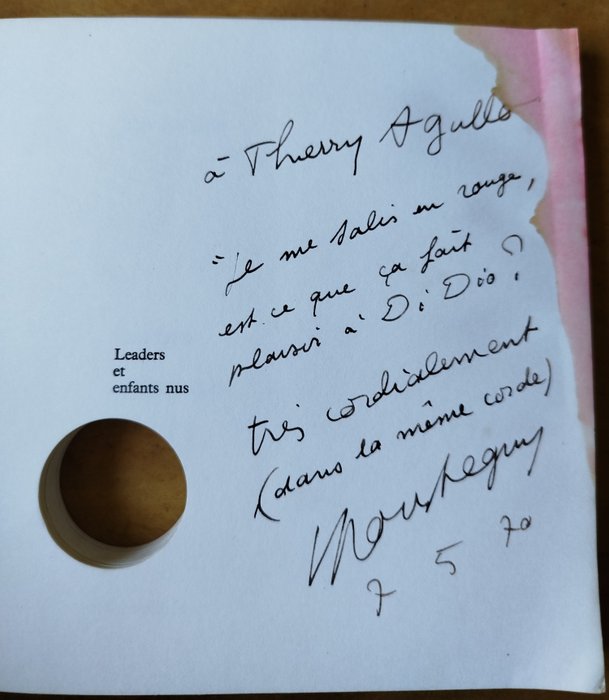 à Thierry Agullo
"Je me salis en rouge,
est-ce que ça fait
plaisir à Di Dio?
Leaders
et
enfants nus
très cordialement
(dans la même corde)
7 5 70